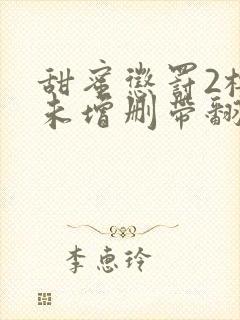 甜蜜惩罚2
未增删带翻
李惠玲